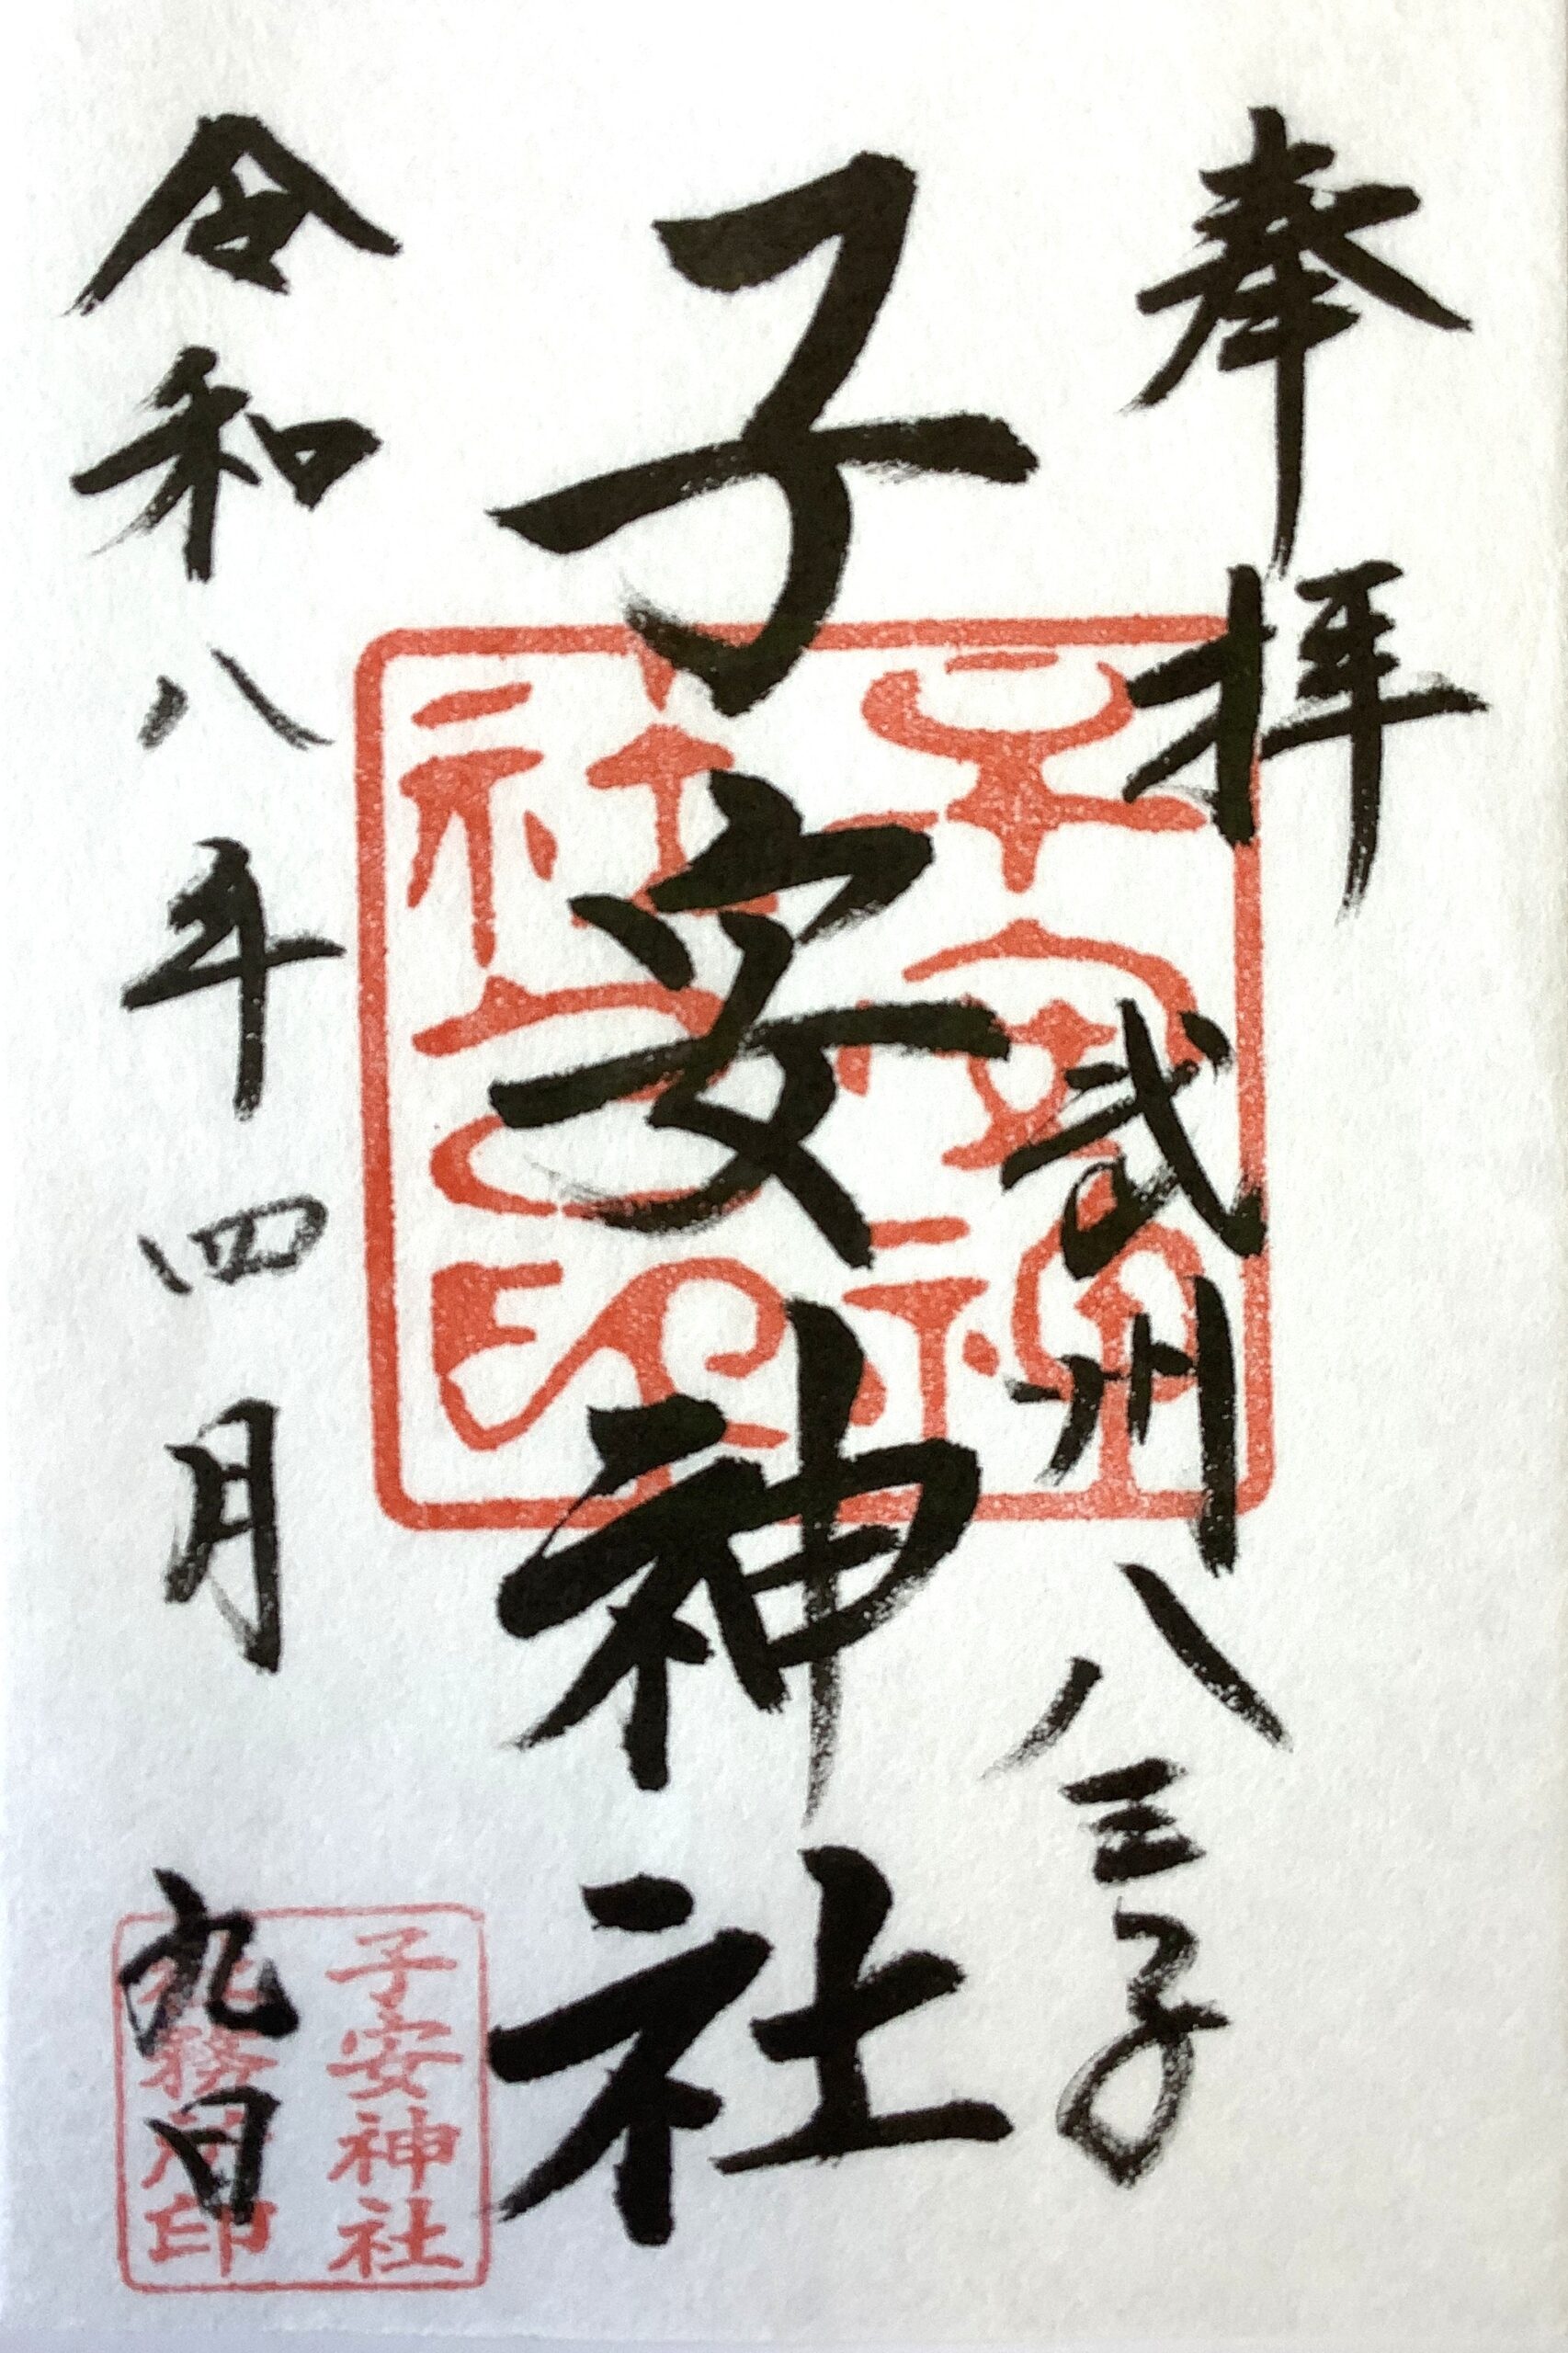 奉拝
武州八王子
子安神社
令和八年四月九日
子安神
社之印
子安神社
社務所印